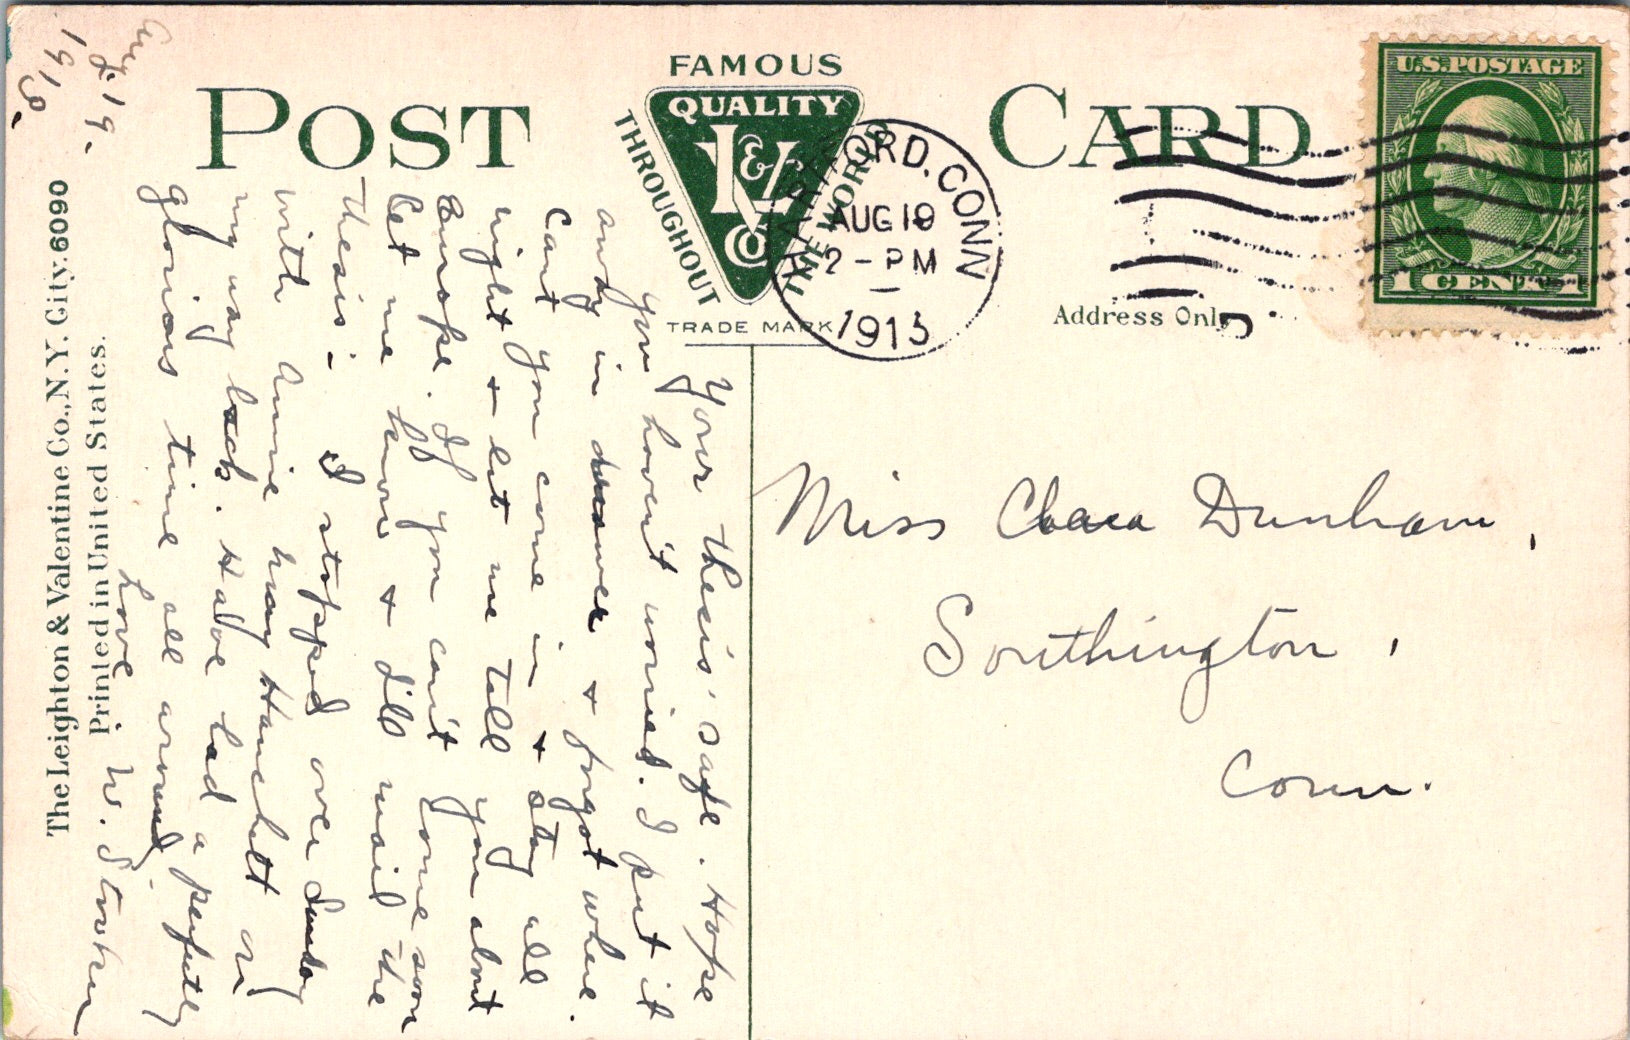 Aug
19.
1913.
POST CARD
FAMOUS
QUALITY
L & V
CO
THROUGHOUT
THE WORLD
TRADE MARK
HARTFORD, CONN
AUG 19
2 - PM
1913
U.S. POSTAGE
1 CENT 1
Address Only
Your thesis' safe. Hope
you haven't worried. I put it
away in drawer + forgot where.
Cant you come in + stay all
night + let me tell you about
Europe. If you can't come soon
let me know + I'll mail the
thesis:- I stopped over Sunday
with Annie May Hanchett on
my way back. Have had a perfectly
glorious time all around.
Love
W.
Miss Clara Dunham,
Southington,
Conn.
The Leighton & Valentine Co., N.Y. City. 6090
Printed in United States.